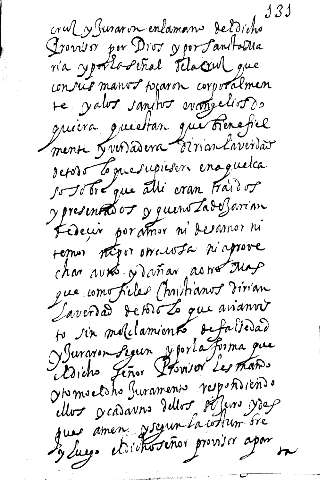 131
cruz y Juraron en la mano del dicho
Provisor por Dios y por santa Ma
ria y por la señal de la cruz que
con sus manos tocaron corporalmen
te y a los santos evangelios do
quiera que estan que bien e fiel
mente y verdadera dirian la verdad
de todo lo que supiesen en aquel ca
so sobre que alli eran traidos
y presentados y que no la dexarian
de decir por amor ni desamor ni
temor ni por otra cosa ni aprove
char a uno y dañar a otro Mas
que como fieles Christianos dirian
La verdad de todo lo que avian vis
to sin mesclamiento de falsedad
y Juraron segun y por la forma que
el dicho señor Provisor les mando
y tomo el dho Juramento respondiendo
ellos y cada uno dellos si Juro y des
pues amen y segun la costumbre
y luego el dicho señor provisor apar
ta